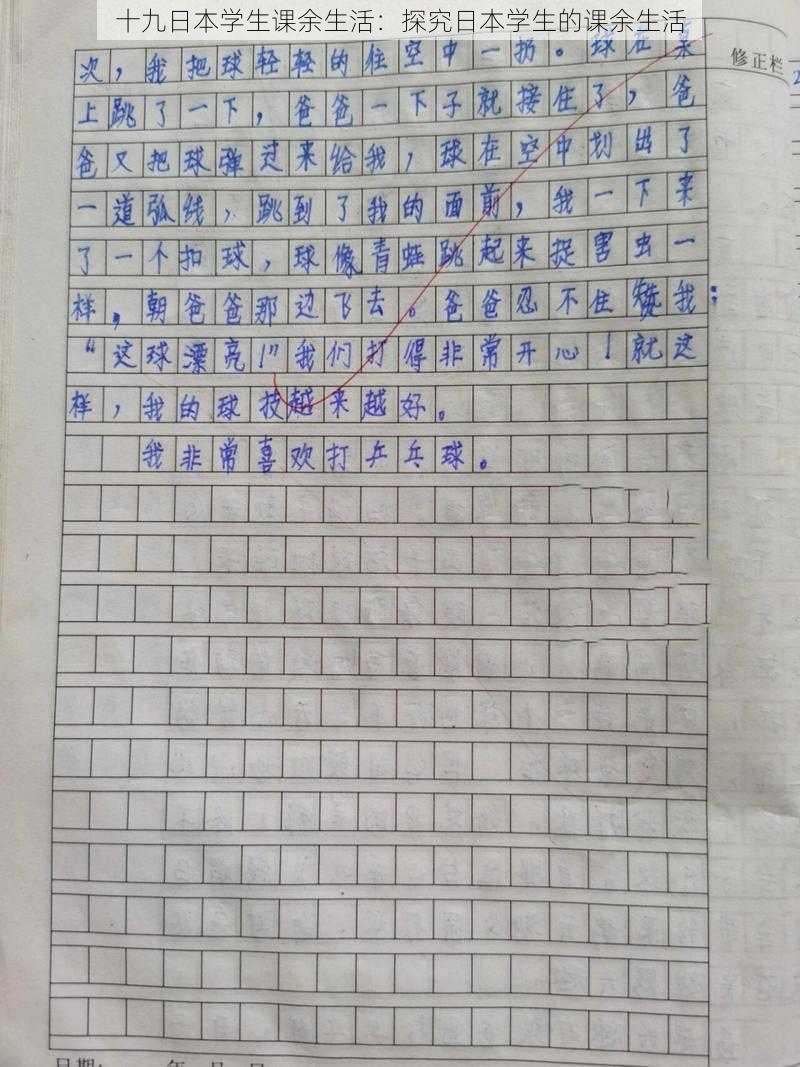 十九日本学生课余生活：探究日本学生的课余生活
修正栏
次，我把球轻轻的往空中一扔。球在桌
上跳了一下，爸爸一下子就接住了，爸
爸又把球弹过来给我，球在空中划出了
一道弧线，跳到了我的面前，我一下来
了一个扣球，球像青蛙跳起来捉害虫一
样，朝爸爸那边飞去。爸爸忍不住我：
“这球漂亮！”我们打得非常开心！就这
样，我的球技越来越好。
我非常喜欢打乒乓球。
日期： 年 月 日